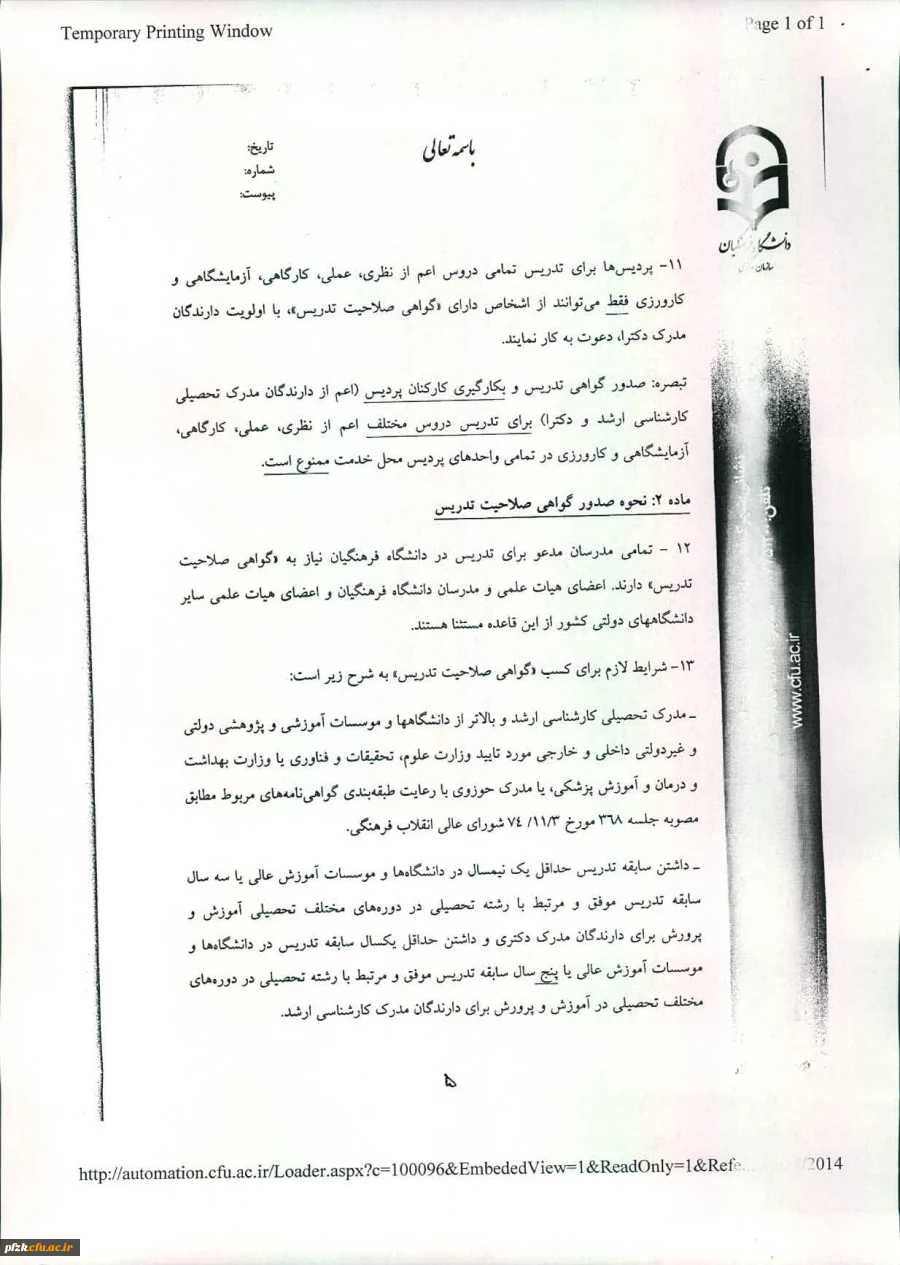 Temporary Printing Window
Page 1 of 1
باسمه تعالی
تاریخ:
شماره:
پیوست:
دانشگاه فرهنگیان
۱۱- پردیس‌ها برای تدریس تمامی دروس اعم از نظری، عملی، کارگاهی، آزمایشگاهی و
کارورزی فقط می‌توانند از اشخاص دارای «گواهی صلاحیت تدریس»، با اولویت دارندگان
مدرک دکترا، دعوت به کار نمایند.
تبصره: صدور گواهی تدریس و بکارگیری کارکنان پردیس (اعم از دارندگان مدرک تحصیلی
کارشناسی ارشد و دکترا) برای تدریس دروس مختلف اعم از نظری، عملی، کارگاهی،
آزمایشگاهی و کارورزی در تمامی واحدهای پردیس محل خدمت ممنوع است.
ماده ۲: نحوه صدور گواهی صلاحیت تدریس
۱۲ - تمامی مدرسان مدعو برای تدریس در دانشگاه فرهنگیان نیاز به «گواهی صلاحیت
تدریس» دارند. اعضای هیات علمی و مدرسان دانشگاه فرهنگیان و اعضای هیات علمی سایر
دانشگاههای دولتی کشور از این قاعده مستثنا هستند.
۱۳- شرایط لازم برای کسب «گواهی صلاحیت تدریس» به شرح زیر است:
ـ مدرک تحصیلی کارشناسی ارشد و بالاتر از دانشگاهها و موسسات آموزشی و پژوهشی دولتی
و غیردولتی داخلی و خارجی مورد تایید وزارت علوم، تحقیقات و فناوری یا وزارت بهداشت
و درمان و آموزش پزشکی، یا مدرک حوزوی با رعایت طبقه‌بندی گواهی‌نامه‌های مربوط مطابق
مصوبه جلسه ۳۶۸ مورخ ۱۱/۳/ ۷۴ شورای عالی انقلاب فرهنگی.
ـ داشتن سابقه تدریس حداقل یک نیمسال در دانشگاه‌ها و موسسات آموزش عالی یا سه سال
سابقه تدریس موفق و مرتبط با رشته تحصیلی در دوره‌های مختلف تحصیلی آموزش و
پرورش برای دارندگان مدرک دکتری و داشتن حداقل یکسال سابقه تدریس در دانشگاه‌ها و
موسسات آموزش عالی یا پنج سال سابقه تدریس موفق و مرتبط با رشته تحصیلی در دوره‌های
مختلف تحصیلی در آموزش و پرورش برای دارندگان مدرک کارشناسی ارشد.
www.cfu.ac.ir
۵
http://automation.cfu.ac.ir/Loader.aspx?c=100096&EmbededView=1&ReadOnly=1&Refe... /2014
pfzk.cfu.ac.ir